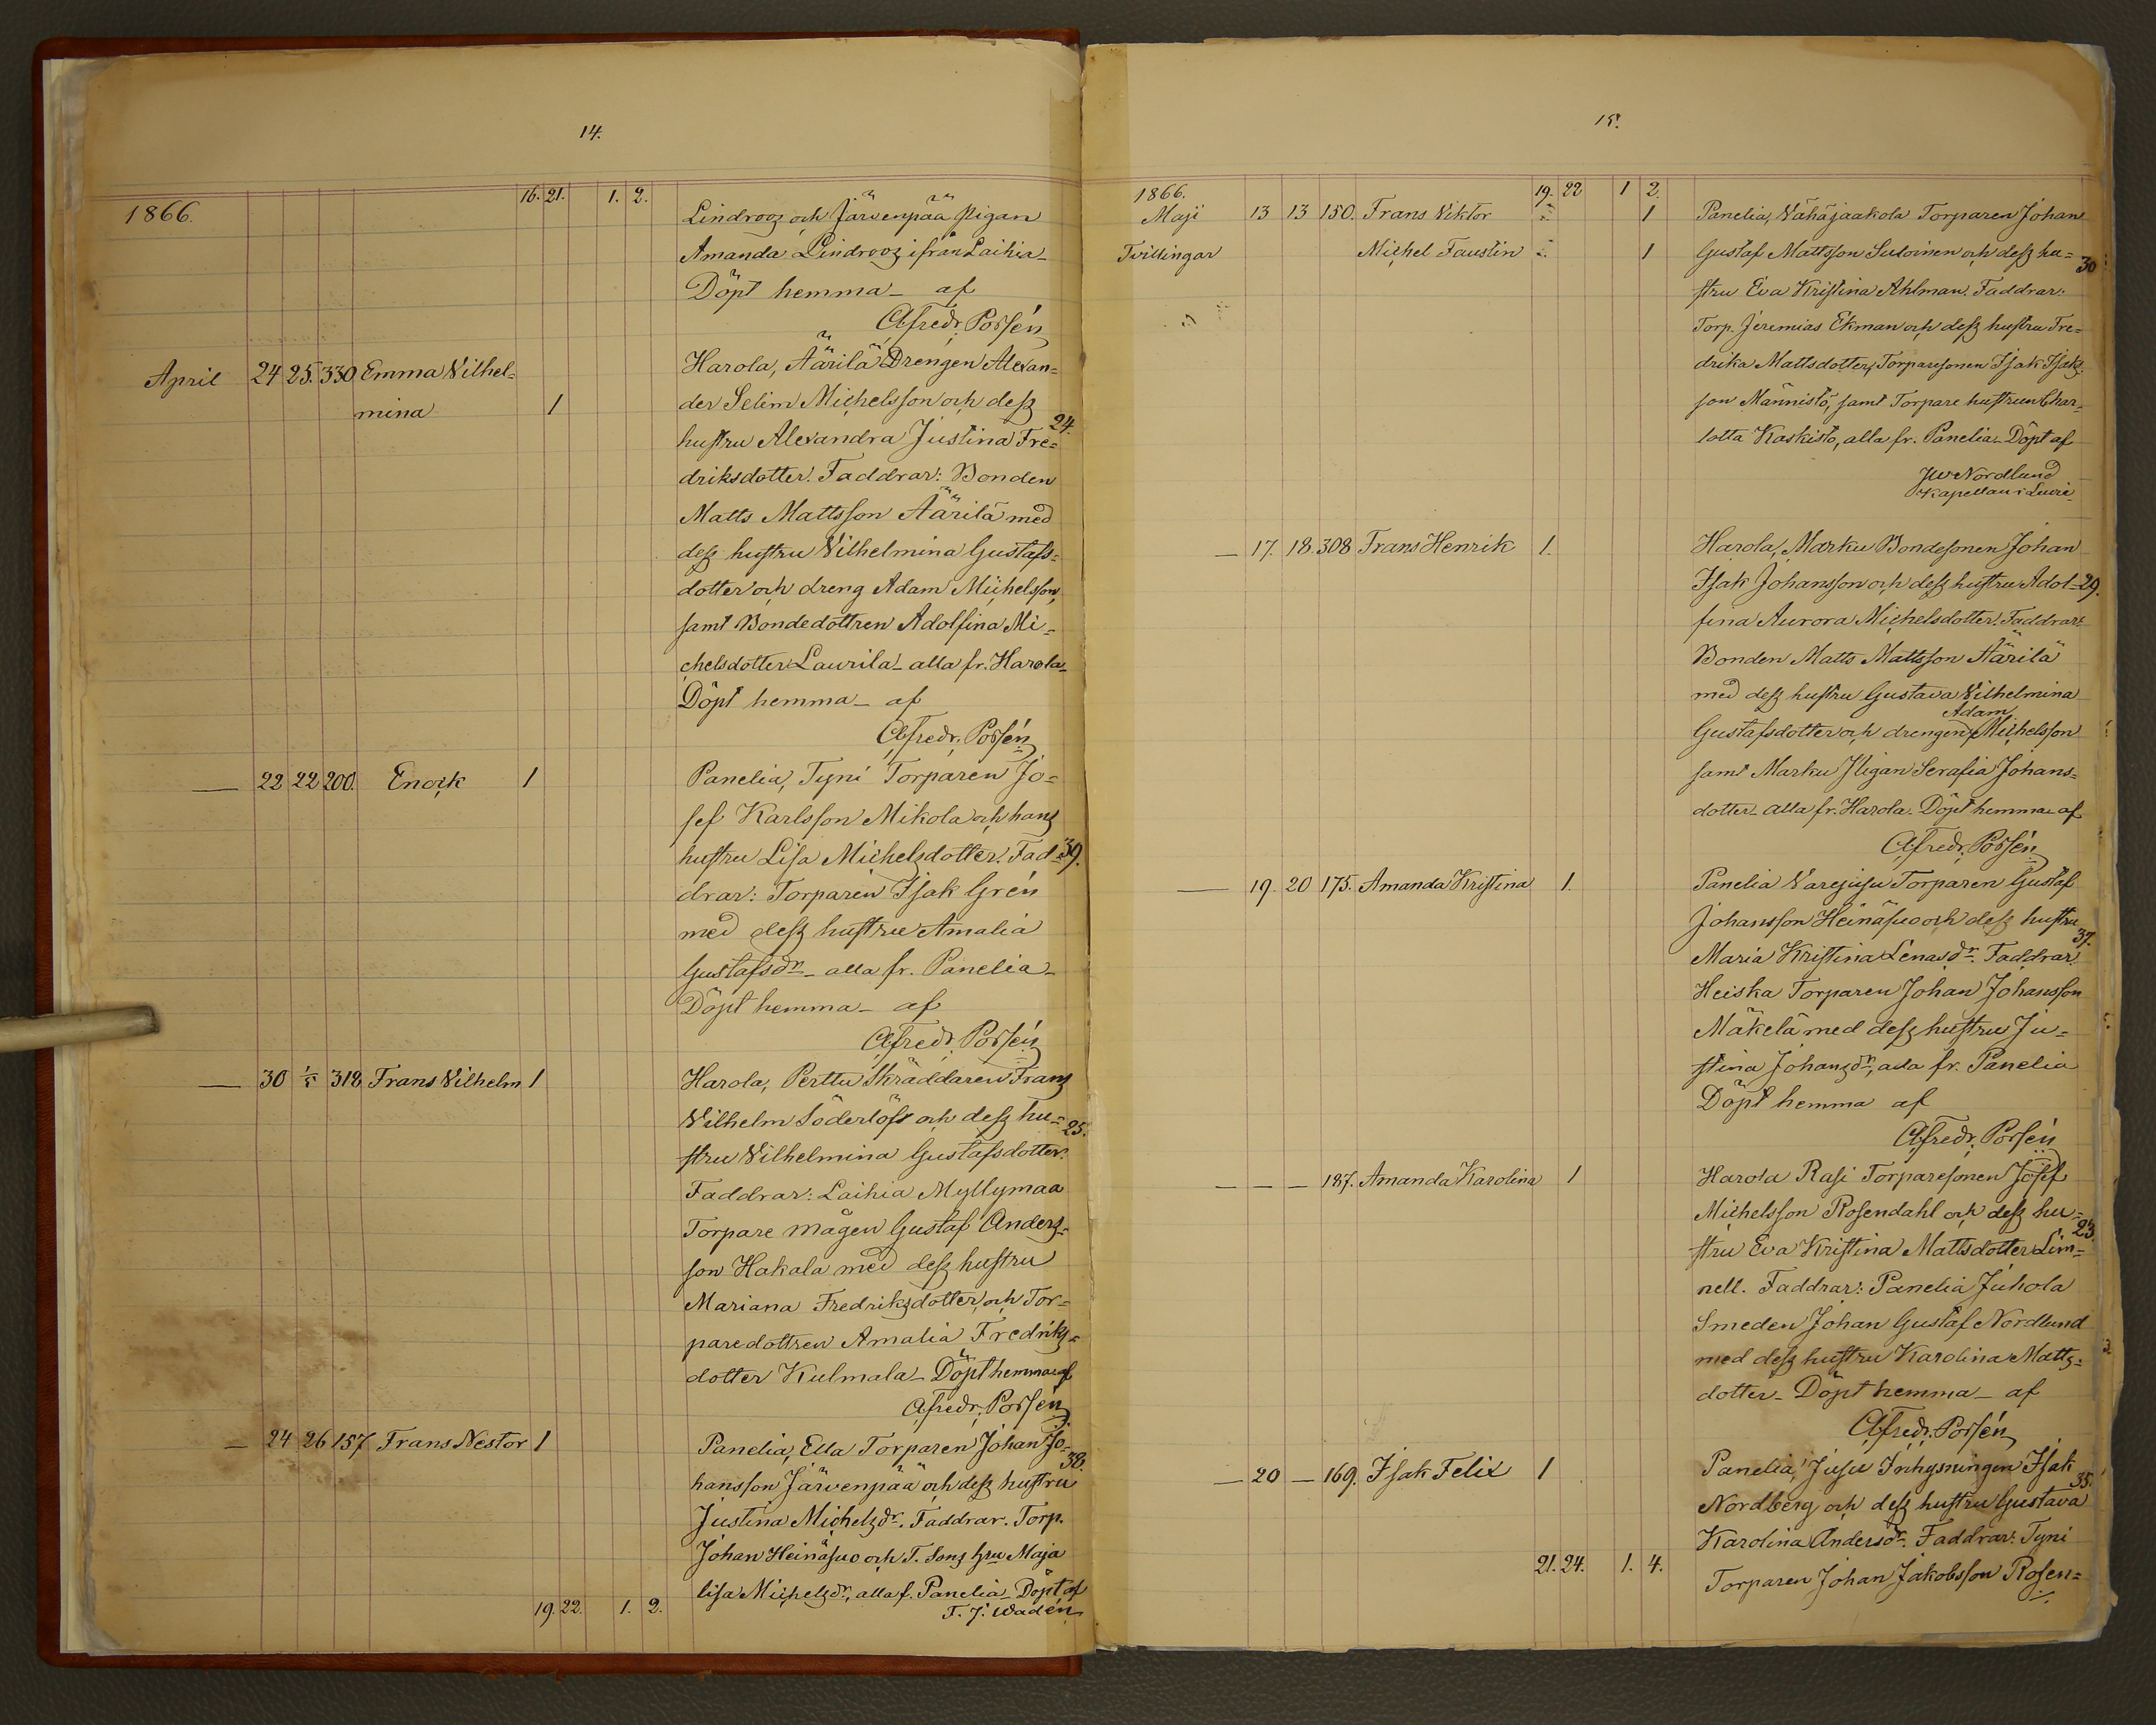 14.
16. 21. 1. 2.
1866.
Lindrooz och Järvenpää pigan
Amanda Lindrooz ifrån Laihia_
Döpt hemma_ af
Alfredr. Porsén
April 24 25. 330 Emma Vilhel= Harola, Äärilä Drengen Alexan=
mina 1 der Selim Michelsson och dess
24.
hustru Alexandra Justina Fre=
driksdotter. Faddrar: Bonden
Matts Mattsson Äärilä med
dess hustru Vilhelmina Gustafs=
dotter och dreng Adam Michelsson,
samt Bondedottren Adolfina Mi=
chelsdotter Laurila_ alla fr. Harola_
Döpt hemma_ af
Alfredr. Porsén
— 22 22 200. Enock 1 Panelia, Tyni Torparen Jo=
sef Karlsson Mikola och hans
hustru Lisa Michelsdotter. Fad= 39.
drar: Torparen Isak Grén
med dess hustru Amalia
Gustafsdr_ alla fr. Panelia_
Döpt hemma_ af
Alfredr. Porsén
— 30 1/5 318 Frans Vilhelm 1 Harola, Perttu Skräddaren Frans
Vilhelm Söderlöf och dess hu= 25.
stru Vilhelmina Gustafsdotter.
Faddrar: Laihia Myllymaa
Torpare mågen Gustaf Anders=
son Hakala med dess hustru
Mariana Fredriksdotter, och Tor=
paredottren Amalia Fredriks=
dotter Kulmala_ Döpt hemma af
Alfredr. Porsén
— 24 26 157 Frans Nestor 1 Panelia, Ella Torparen Johan Jo=
38.
hansson Järvenpää och dess hustru
Justina Michelsdr. Faddrar. Torp.
Johan Heinäsuo och T. Sons hru Maja
lisa Michelsdr, alla f. Panelia_ Döpt af
19. 22. 1. 2. T. J. Wadén
15.
1866. 19. 22 1 2.
Maji 13 13 150. Frans Viktor 1 Panelia, Vähäjaakola Torparen Johan
Tvillingar Michel Faustin 1 Gustaf Mattsson Sutoinen och dess hu= 30
stru Eva Kristina Ahlman. Faddrar:
Torp. Jeremias Ekman och dess hustru Fre=
drika Mattsdotter, Torparesonen Isak Isaks
son Männistö, samt Torpare hustrun Char=
lotta Kaskisto, alla fr. Panelia_ Döpt af
JW Nordlund
Kapellan i Luvia
— 17. 18. 308 Frans Henrik 1. Harola, Marku Bondesonen Johan
Isak Johansson och dess hustru Adol= 29.
fina Aurora Michelsdotter. Faddrar:
Bonden Matts Mattsson Äärilä
med dess hustru Gustava Vilhelmina
Adam
Gustafsdotter och drengen Michelsson
samt Marku Pigan Serafia Johans=
dotter_ alla fr. Harola. Döpt hemma_ af
Alfredr. Porsén
— 19. 20 175. Amanda Kristina 1. Panelia Varejusu Torparen Gustaf
Johansson Heinäsuo och dess hustru
37.
Maria Kristina Lenasdr. Faddrar:
Heiska Torparen Johan Johansson
Mäkelä med dess hustru Ju=
stina Johansdr, alla fr. Panelia
Döpt hemma af
Alfredr. Porsén
— — — 187. Amanda Karolina 1 Harola Rasi Torparesonen Josef
Michelsson Rosendahl och dess hu=
23.
stru Eva Kristina Mattsdotter Lim=
nell. Faddrar: Panelia Juhola
Smeden Johan Gustaf Nordlund
med dess hustru Karolina Matts=
dotter_ Döpt hemma_ af
Alfredr. Porsén
— 20 — 169. Isak Felix 1 Panelia, Jusu Inhysningen Isak
35.
Nordberg och dess hustru Gustava
Karolina Andersdr. Faddrar: Tyni
21. 24. 1. 4. Torparen Johan Jakobsson Rosen=